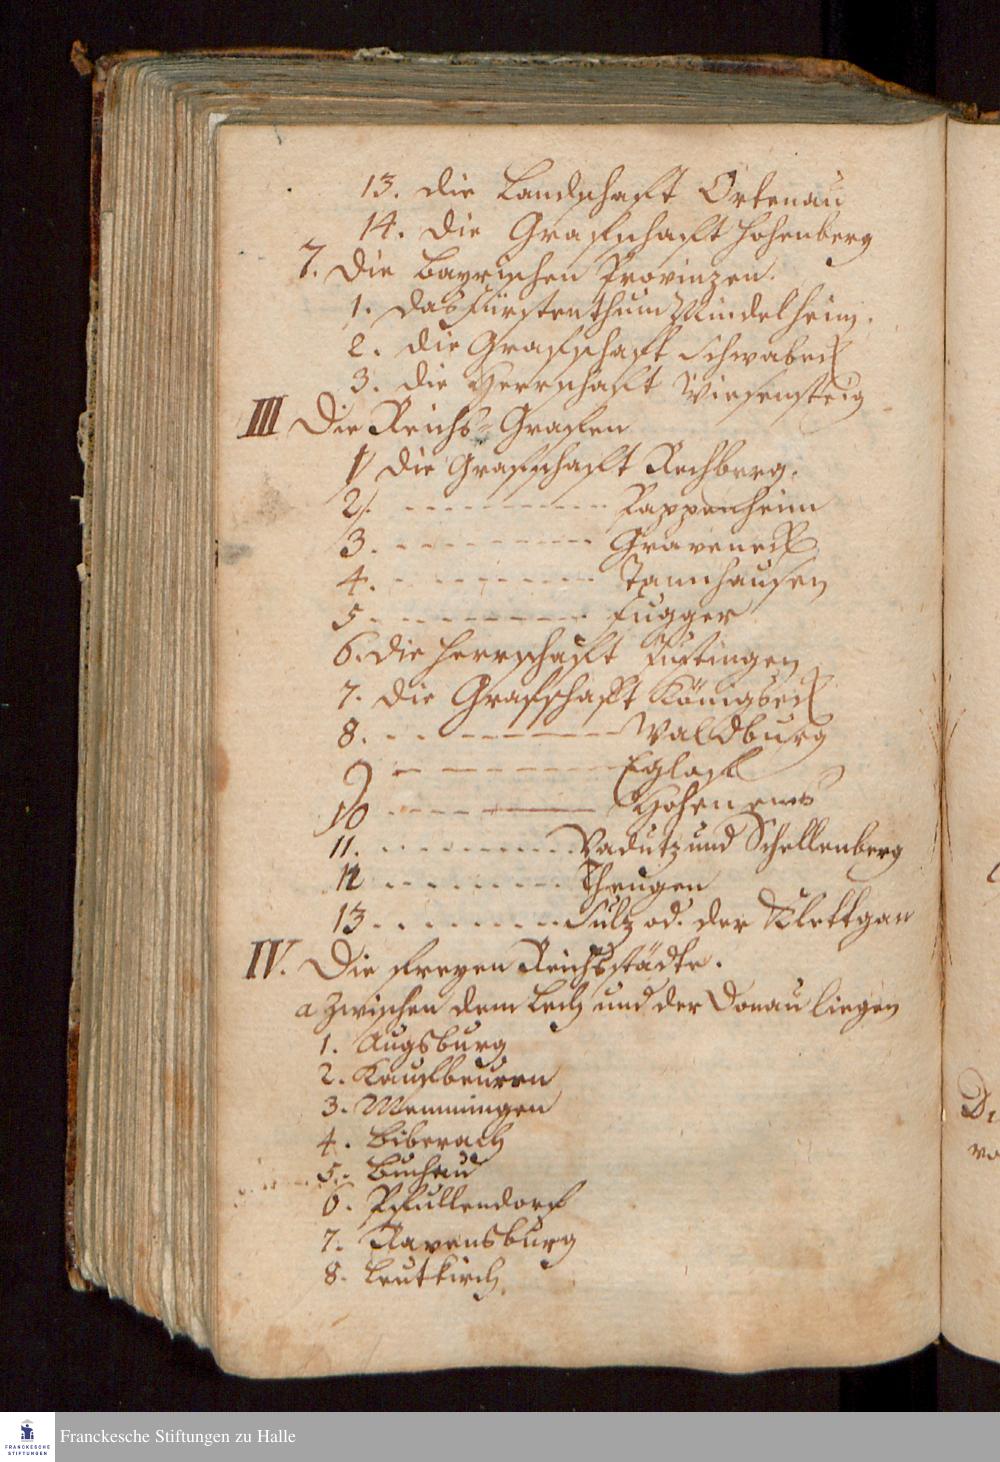 13. die Landschafft Ortenau
14. die Graffschafft Hohenberg
7. Die Bayrischen Provinzen.
1. das Fürstenthum Mindelheim.
2. die Graffschafft Schwabeck
3. die Herrschafft Wiesensteig
III Die Reichs-Graffen
1/ die Graffschafft Rechberg.
2/. - - - - - - - - - - Pappenheim
3. - - - - - - - - - - Graveneck
4. - - - - - - - - - - Tannhausen
5. - - - - - - - - - - Fugger
6. die Herrschafft Justingen
7. die Graffschafft Königseck
8. - - - - - - - - Waldburg
9 - - - - - - - Egloff
10 - - - - - - - Hohenems
11. - - - - - - - - - Vadutz und Schellenberg
12 - - - - - - - - Thengen
13 - - - - - - - - - Sulz od. der Klettgau
IV. Die freyen Reichsstädte.
a Zwischen dem Lech und der Donau liegen
1. Augsburg
2. Kauffbeuren
3. Memmingen
4. Biberach
5. Buchau
6. Pfullendorf
7. Ravensburg
8. Leutkirch
Franckesche Stiftungen zu Halle
FRANCKESCHE
STIFTUNGEN